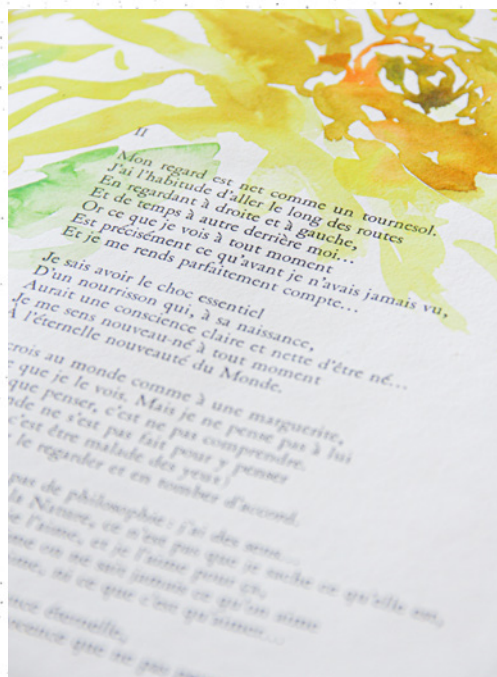 II
Mon regard est net comme un tournesol.
J'ai l'habitude d'aller le long des routes
En regardant à droite et à gauche,
Et de temps à autre derrière moi...
Or ce que je vois à tout moment
Est précisément ce qu'avant je n'avais jamais vu,
Et je me rends parfaitement compte...
Je sais avoir le choc essentiel
D'un nourrisson qui, à sa naissance,
Aurait une conscience claire et nette d'être né...
Je me sens nouveau-né à tout moment
À l'éternelle nouveauté du Monde.
crois au monde comme à une marguerite,
que je le vois. Mais je ne pense pas à lui
que penser, c'est ne pas comprendre.
ne s'est pas fait pour y penser
c'est être malade des yeux)
le regarder et en tomber d'accord.
pas de philosophie : j'ai des sens...
la Nature, ce n'est pas que je sache ce qu'elle est,
l'aime, et je l'aime pour ça,
on ne sait jamais ce qu'on aime
ni ce que c'est qu'aimer...